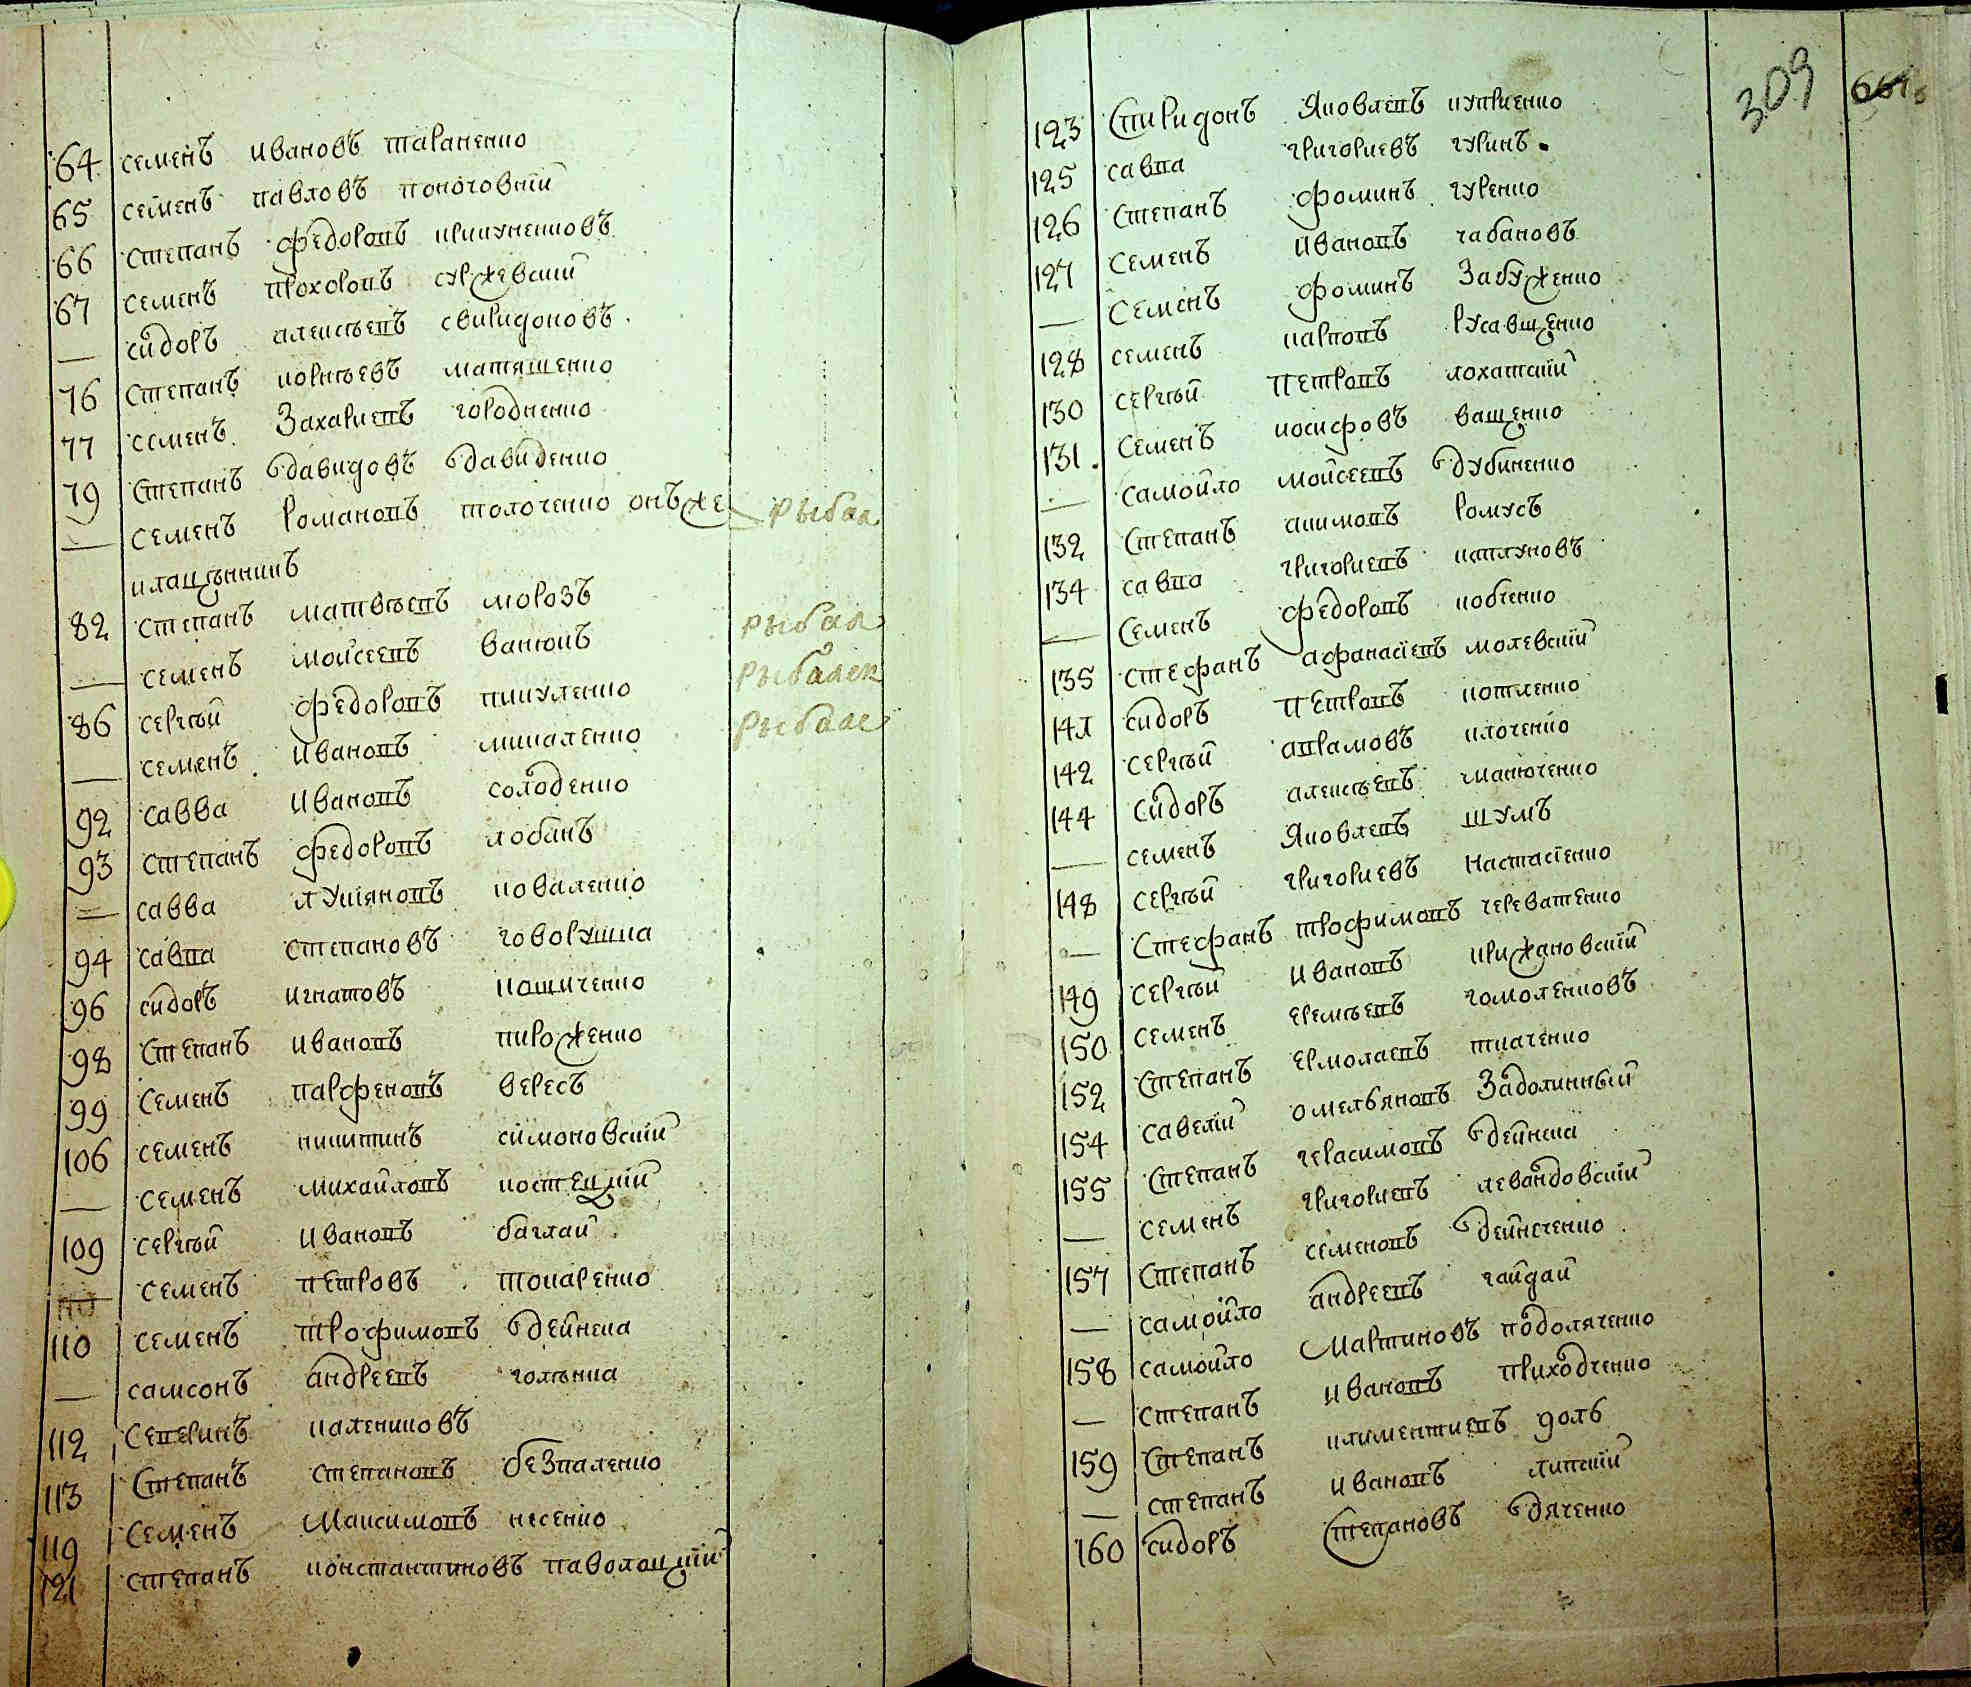 64 семенъ ивановъ тараненко
65 семенъ павловъ коночовкій
66 степанъ федоровъ крикуненковъ
67 семенъ прохоровъ суржевскій
— сидоръ алексѣевъ свиридоновъ.
76 степанъ корнѣевъ матяшенко
77 семенъ захариевъ городненко
79 степанъ давидовъ давиденко
— семенъ романовъ толоченко онъже рыбал
клащѣнникъ
82 степанъ матвѣевъ морозъ рыбал
— семенъ мойсеевъ ванюкъ рыбалек
86 сергѣй федоровъ пикуленко рыбалк
— семенъ ивановъ микаленко
92 савва ивановъ солоденко
93 степанъ федоровъ лобанъ
— савва лукіяновъ коваленко
94 савва степановъ говорушка
96 сидоръ игнатовъ кошиченко
98 степанъ ивановъ пироженко
99 семенъ парфеновъ вересъ
106 семенъ никитинъ симоновскій
— семенъ михайловъ костецкій
109 сергѣй ивановъ баглай
110 семенъ петровъ токаренко
110 семенъ трофимовъ дейнека
— самсонъ андреевъ голѣнка
112 северинъ каленковъ
113 степанъ степановъ безпаленко
119 семенъ максимовъ несенко
121 степанъ константиновъ паволоцкій
309 661
123 спиридонъ яковлевъ куприенко
125 савва григориевъ гуринъ.
126 степанъ фоминъ гуренко
127 семенъ ивановъ чабановъ
— семенъ фоминъ забуженко
128 семенъ карповъ русавщенко
130 сергѣй петровъ лохатскій
131. семенъ иосифовъ ващенко
— самойло мойсеевъ дубиненко
132 степанъ акимовъ ромусъ
134 савва григориевъ каплуновъ
— семенъ федоровъ кобченко
135 стефанъ афанасіевъ молевскій
141 сидоръ петровъ котленко
142 сергѣй аврамовъ клоченко
144 сидоръ алексѣевъ манюченко
— семенъ яковлевъ шумъ
148 сергѣй григориевъ настасіенко
— стефанъ трофимовъ череватенко
149 сергѣй ивановъ крижановскій
150 семенъ еремѣевъ гомоленковъ
152 степанъ ермолаевъ ткаченко
154 савелій омельяновъ задолинный
155 степанъ герасимовъ дейнека
— семенъ григориевъ левандовскій
157 степанъ семеновъ дейнеченко
— самойло андреевъ гайдай
158 самойло мартиновъ подоляченко
— степанъ ивановъ приходченко
159 степанъ климентиевъ доль
— степанъ ивановъ липскій
160 сидоръ степановъ дяченко